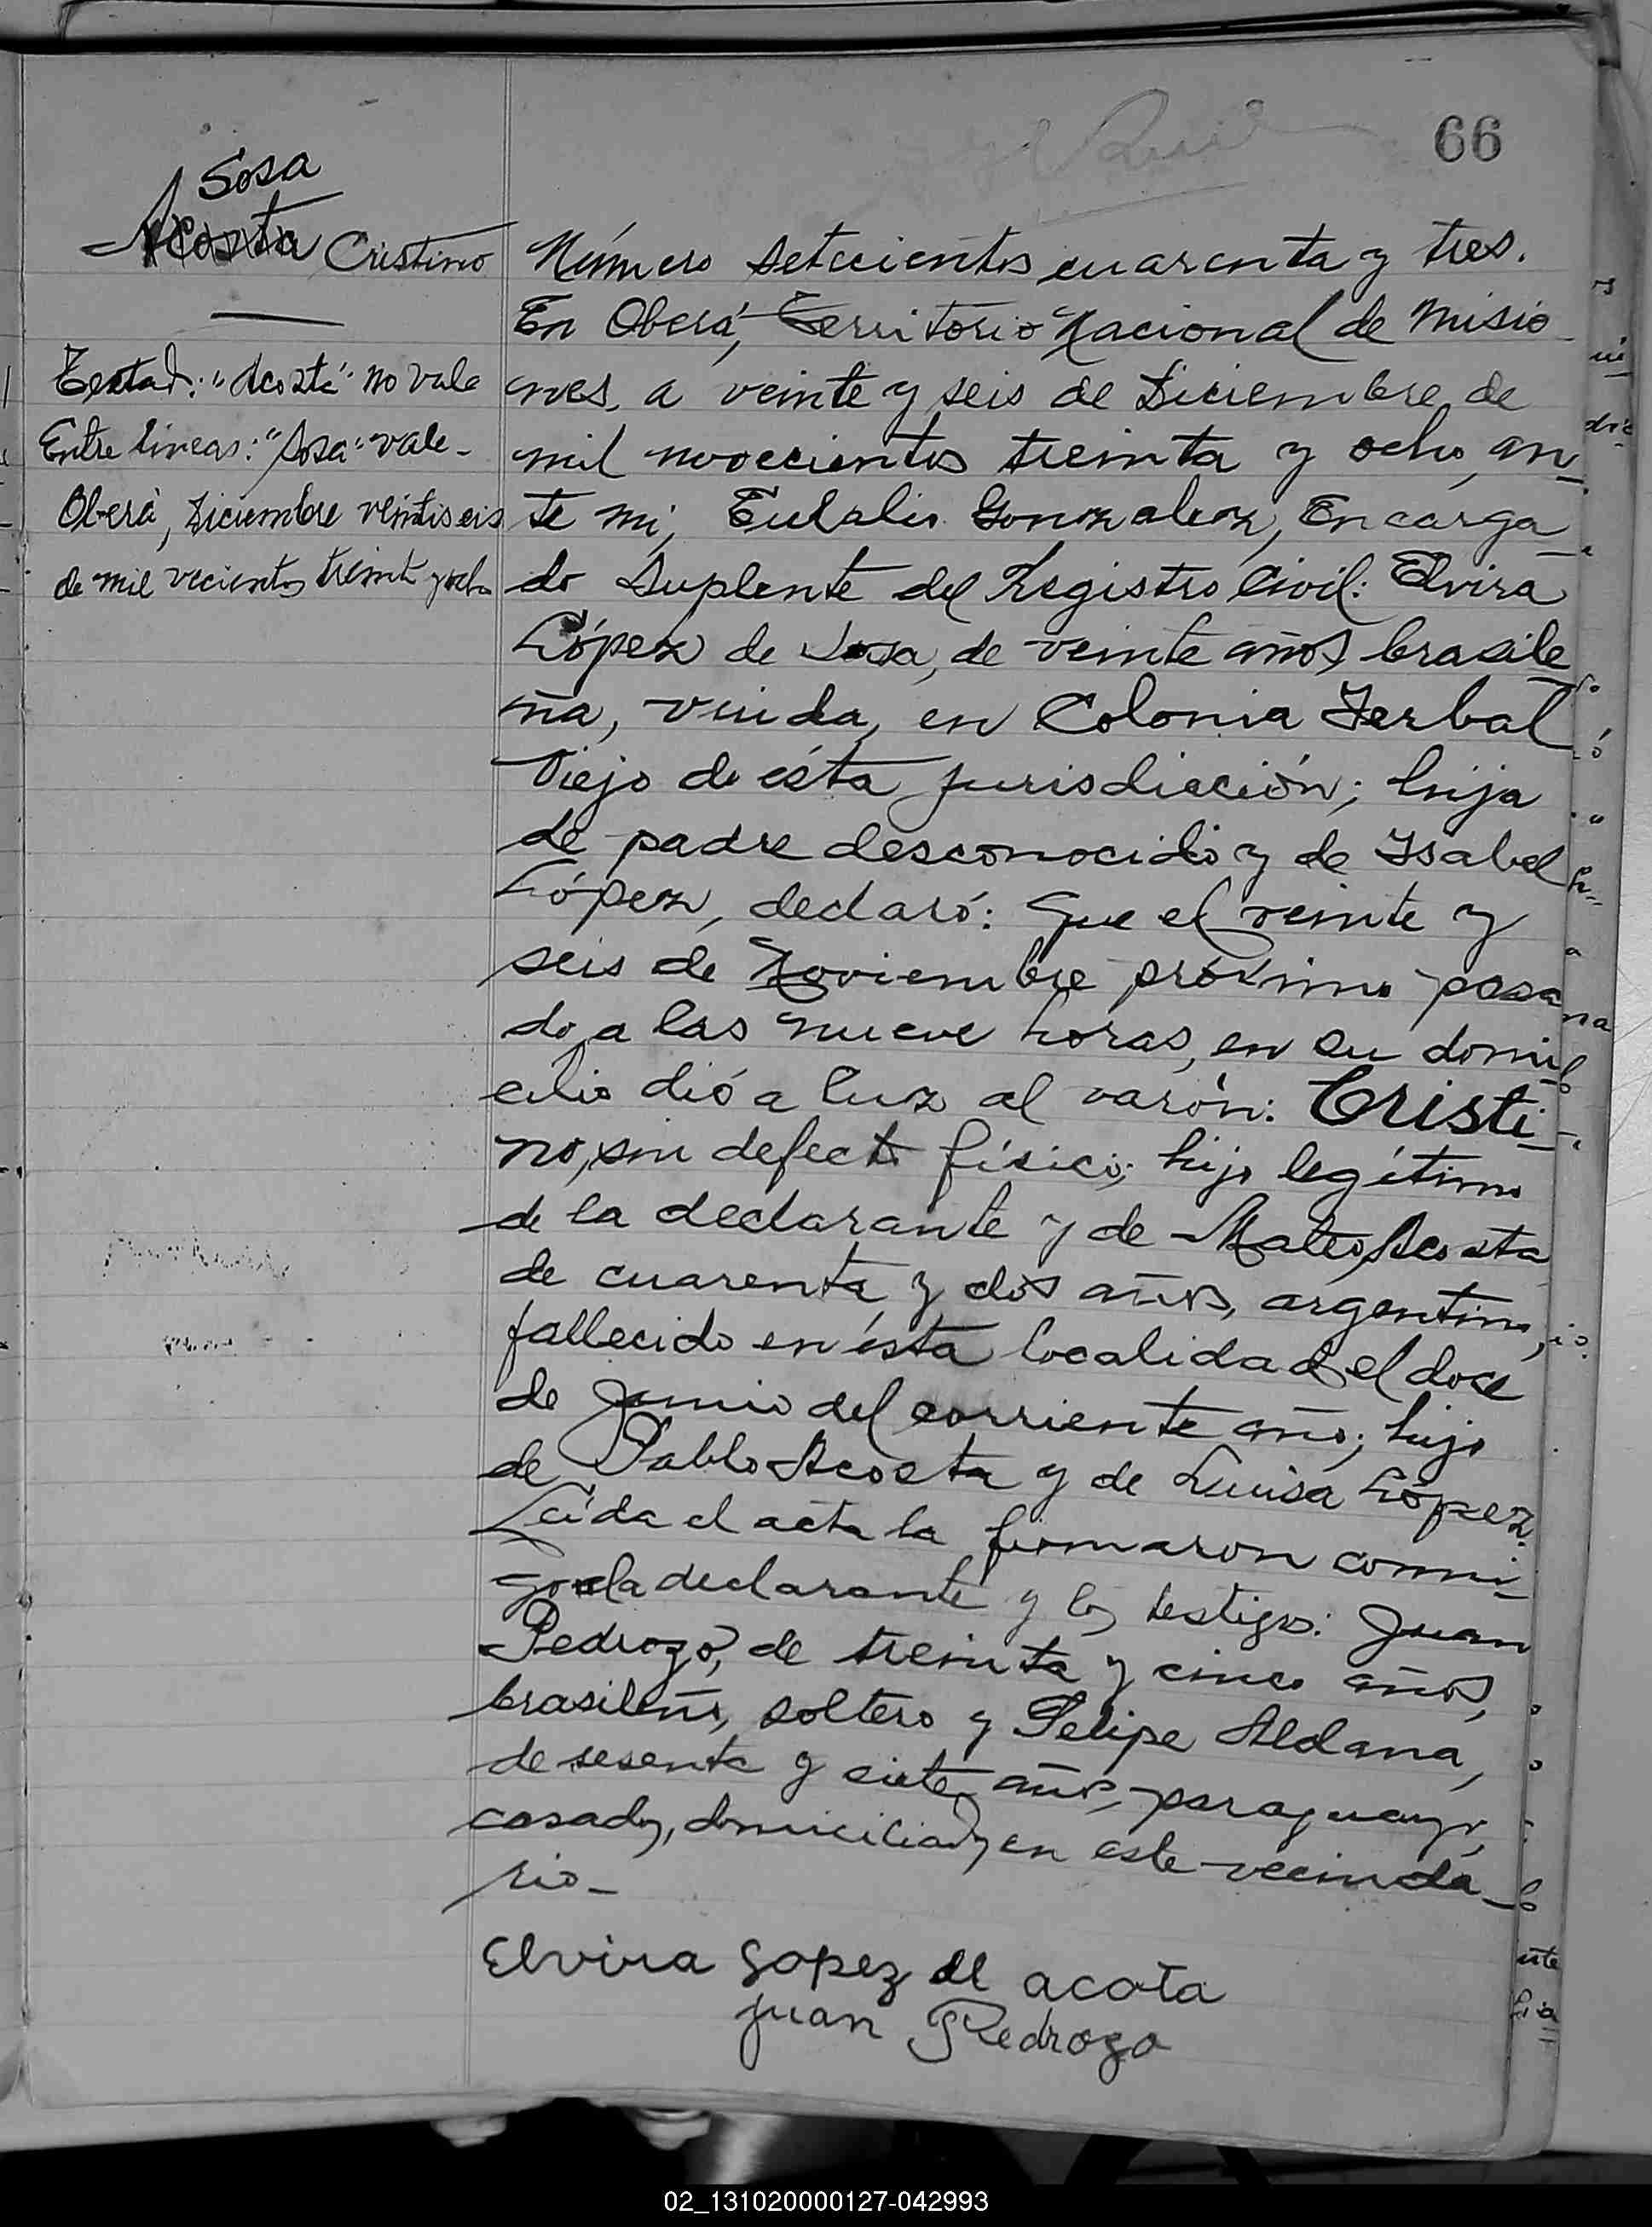 66
Sosa
Acosta Cristino
Testad: "Acosta" no vale
Entre lineas: "Sosa" vale-
Oberá, Diciembre veintiseis
de mil vecientos treinta y ocho
Número setecientos cuarenta y tres.
En Oberá, Territorio Nacional de Misio
nes, a veinte y seis de Diciembre de
mil novecientos treinta y ocho, an-
te mi, Eulalio Gonzalez, Encarga-
do Suplente del Registro Civil: Elvira
López de Sosa, de veinte años brasile-
ña, viuda, en Colonia Yerbal
Viejo de ésta jurisdicción; hija
de padre desconocido y de Isabel
López, declaró: Que el veinte y
seis de Noviembre próximo pasa
do, a las nueve horas, en su domi-
cilio dió a luz al varón: Cristi-
no, sin defecto físico; hijo legítimo
de la declarante y de Mateo Acosta
de cuarenta y dos años, argentino,
fallecido en ésta localidad el doce
de Junio del corriente año; hijo
de Pablo Acosta y de Luisa López.
Leída el acta la firmaron conmi-
go la declarante y los testigos: Juan
Pedrozo, de treinta y cinco años,
brasileño, soltero y Felipe Aldana,
de sesenta y siete años, paraguayo,
casado, domiciliados en este vecinda-
rio-
Elvira Gopez de acota
Juan Pedrozo
02_131020000127-042993